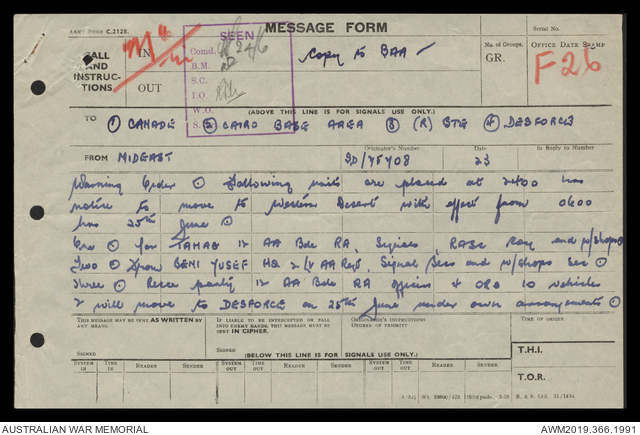 ARMY FORM C.2128.
MESSAGE FORM
Serial No.
CALL AND INSTRUCTIONS
IN
OUT
SEEN
Comd.
B.M.
S.C.
I.O.
W.O.
S.
24/6
Copy to BAA
No. of Groups.
GR.
OFFICE DATE STAMP
F26
(ABOVE THIS LINE IS FOR SIGNALS USE ONLY.)
TO ① CANADE ② CAIRO BASE AREA ③ (R) BTE ④ DESFORCE
FROM MIDEAST
Originator's Number
SD/75408
Date
23
In Reply to Number
Warning Order ⊙ Following units are placed at 2400 hrs
notice to move to Western Desert with effect from 0600
hrs 25th June ⊙
One ⊙ for TAHAG 12 AA Bde RA, Signals, RASC Coy and w/shops
Two ⊙ From BENI YUSEF HQ 2/ AA Regt, Signal Secs and w/shops Sec ⊙
Three ⊙ Recce party 12 AA Bde RA officers 4 ORs 10 vehicles
2 will move to DESFORCE on 25th June under own arrangements ⊙
THIS MESSAGE MAY BE SENT AS WRITTEN BY ANY MEANS.
SIGNED
IF LIABLE TO BE INTERCEPTED OR FALL INTO ENEMY HANDS, THIS MESSAGE MUST BE SENT IN CIPHER.
SIGNED
ORIGINATOR'S INSTRUCTIONS
DEGREE OF PRIORITY.
TIME OF ORIGIN.
(BELOW THIS LINE IS FOR SIGNALS USE ONLY.)
T.H.I.
T.O.R.
SYSTEM IN
TIME IN
READER
SENDER
SYSTEM OUT
TIME OUT
READER
SENDER
SYSTEM OUT
TIME OUT
READER
SENDER
AUSTRALIAN WAR MEMORIAL
AWM2019.366.1991